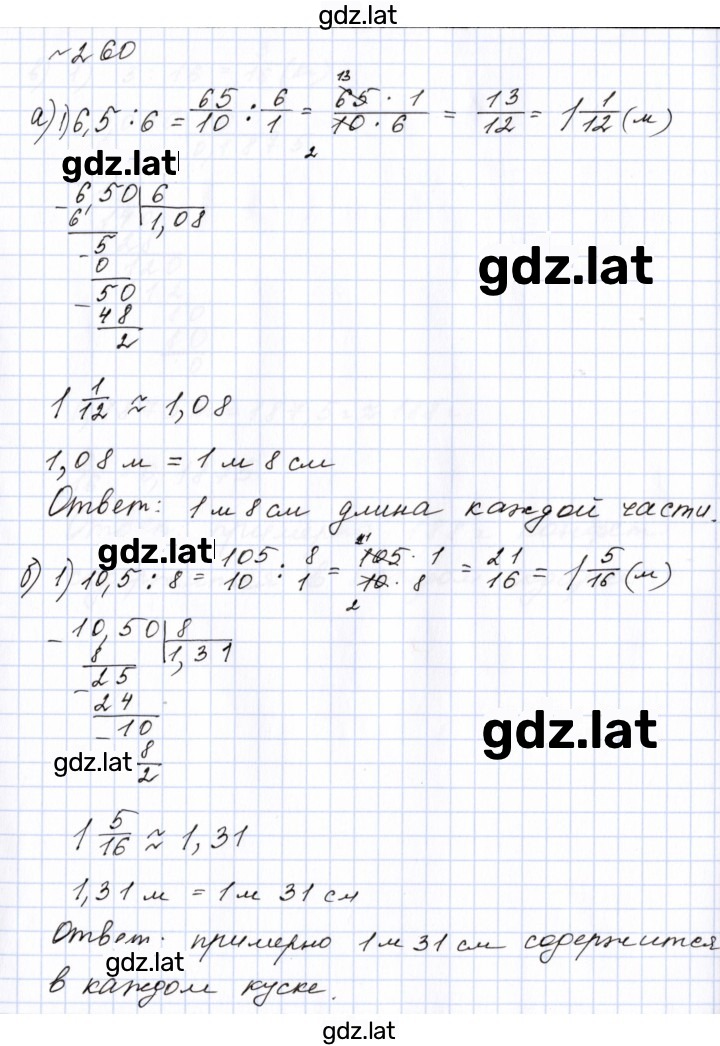 gdz.lat
~260
а) 1) 6,5 : 6 = 65/10 : 6/1 = 65 · 1 / 10 · 6 = 13/12 = 1 1/12 (м)
13
2
gdz.lat
- 6,50 | 6
6 | 1,08
- 5
0
- 50
48
2
gdz.lat
1 1/12 ≈ 1,08
1,08 м = 1 м 8 см
Ответ: 1 м 8 см длина каждой части.
gdz.lat
б) 1) 10,5 : 8 = 105/10 : 8/1 = 105 · 1 / 10 · 8 = 21/16 = 1 5/16 (м)
21
2
- 10,50 | 8
8 | 1,31
- 25
24
- 10
8
2
gdz.lat
gdz.lat
1 5/16 ≈ 1,31
1,31 м = 1 м 31 см
Ответ. примерно 1 м 31 см содержится
gdz.lat
в каждом куске.
gdz.lat